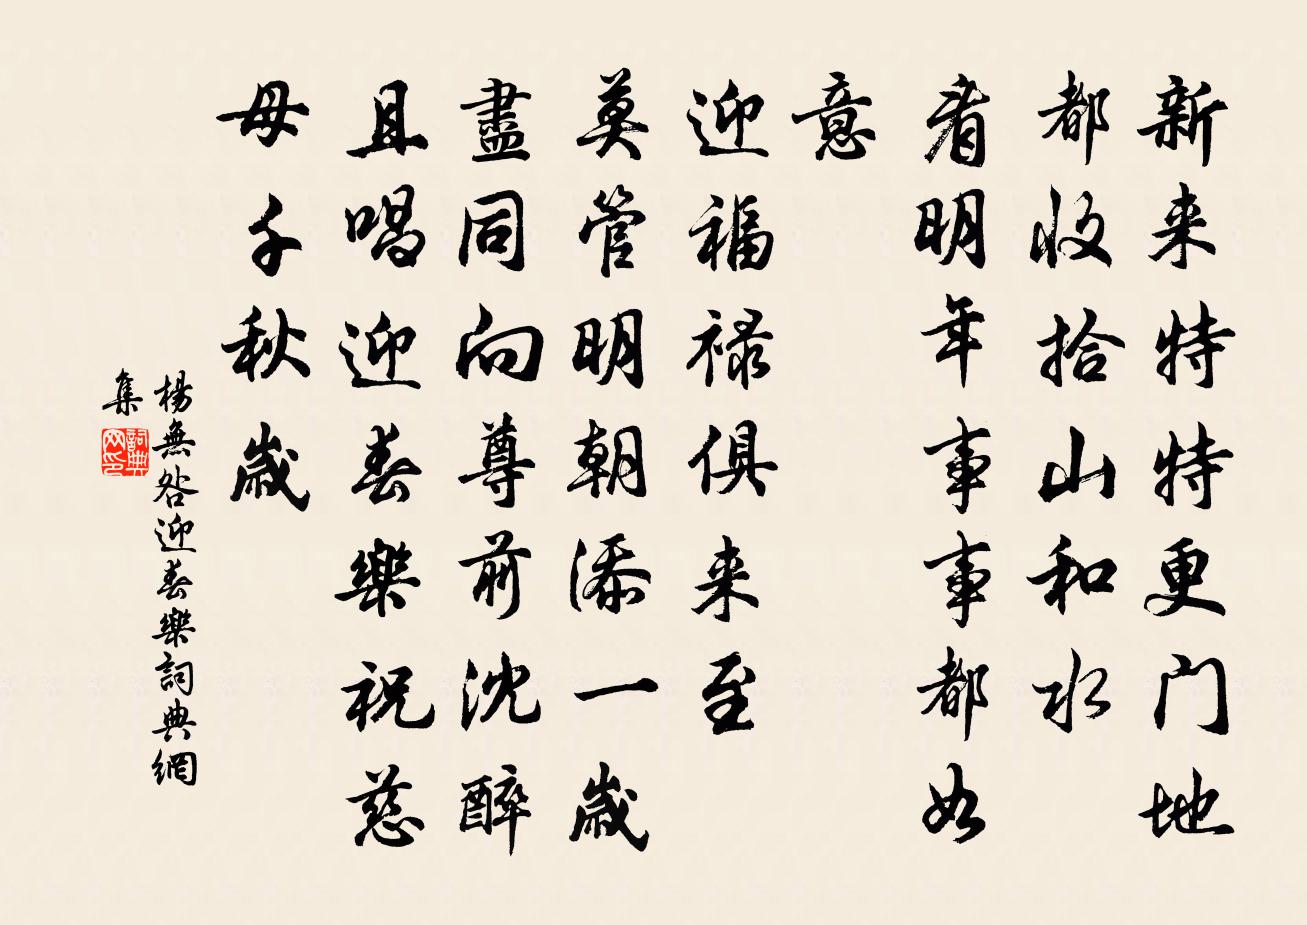 新来特特更门地
都收拾山和水
看明年事事都如
意
迎福禄俱来至
莫管明朝添一歲
盡同向尊前沈醉
且唱迎春樂祝慈
母千秋歲
楊無咎迎春樂詞典網
集
詞典
网印